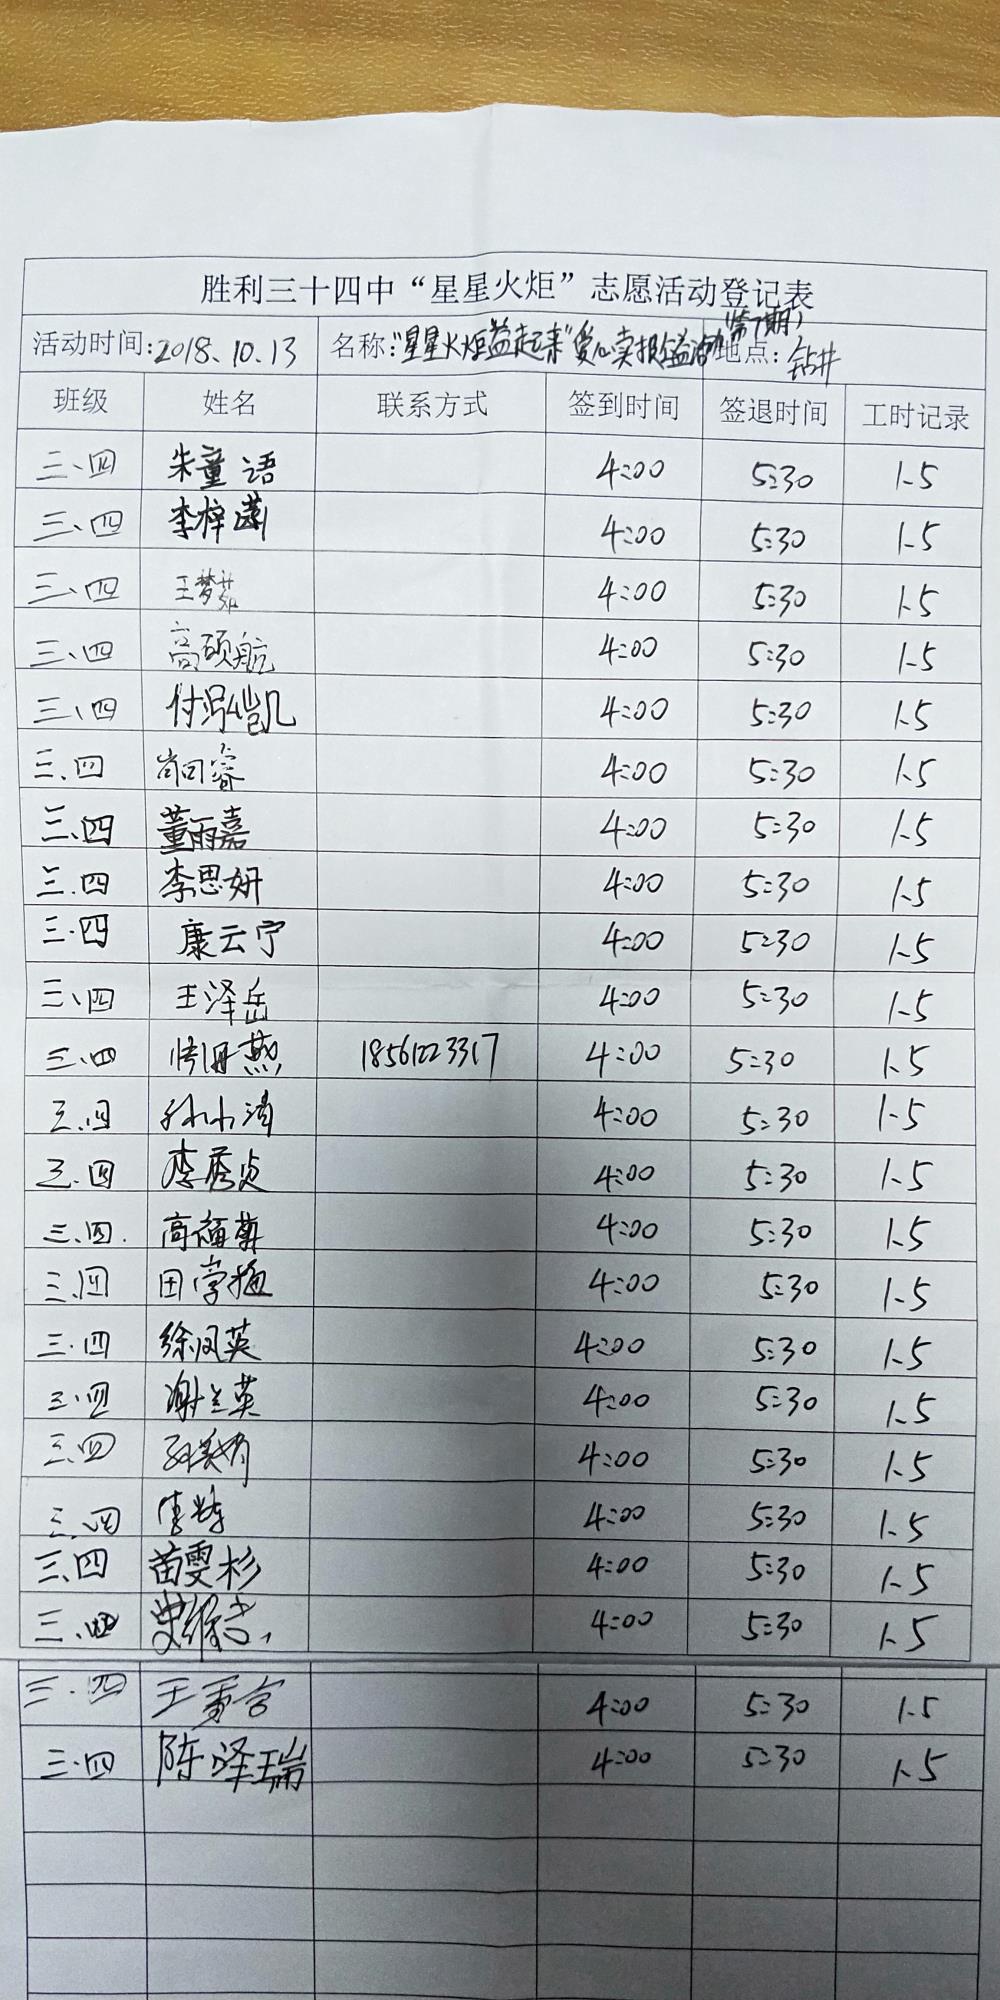 胜利三十四中“星星火炬”志愿活动登记表
活动时间:2018.10.13 名称:“星星火炬益起来”爱心卖报公益活动(第7期) 地点:钻井
班级 姓名 联系方式 签到时间 签退时间 工时记录
三、四 朱童语 4:00 5:30 1.5
三、四 李梓菡 4:00 5:30 1.5
三、四 王梦茹 4:00 5:30 1.5
三、四 高硕航 4:00 5:30 1.5
三、四 付泓凯 4:00 5:30 1.5
三、四 尚田睿 4:00 5:30 1.5
三、四 董雨嘉 4:00 5:30 1.5
三.四 李思妍 4:00 5:30 1.5
三.四 康云宁 4:00 5:30 1.5
三、四 王泽岳 4:00 5:30 1.5
三.四 18561223317 4:00 5:30 1.5
三.四 4:00 5:30 1.5
三.四 李秀贞 4:00 5:30 1.5
三.四. 高福菊 4:00 5:30 1.5
三.四 田学梅 4:00 5:30 1.5
三.四 徐凤英 4:00 5:30 1.5
三.四 谢兰英 4:00 5:30 1.5
三.四 4:00 5:30 1.5
三.四 4:00 5:30 1.5
三、四 苗雯杉 4:00 5:30 1.5
三、四 4:00 5:30 1.5
三.四 4:00 5:30 1.5
三.四 陈泽瑞 4:00 5:30 1.5